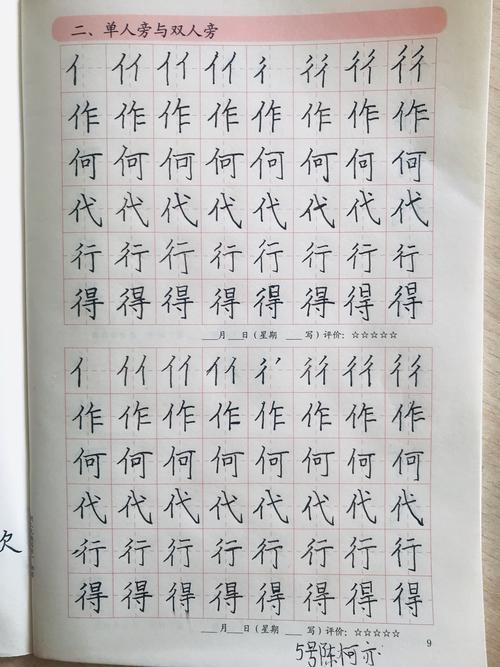 二、单人旁与双人旁
亻 亻亻 亻亻 亻亻 彳 彳彳 彳彳 彳彳
作 作 作 作 作 作 作 作
何 何 何 何 何 何 何 何
代 代 代 代 代 代 代 代
行 行 行 行 行 行 行 行
得 得 得 得 得 得 得 得
___月___日(星期 ___写)评价:☆☆☆☆☆
亻 亻亻 亻亻 亻亻 彳 彳彳 彳彳 彳彳
作 作 作 作 作 作 作 作
何 何 何 何 何 何 何 何
代 代 代 代 代 代 代 代
行 行 行 行 行 行 行 行
得 得 得 得 得 得 得 得
___月___日(星期 ___写)评价:☆☆☆☆☆
9
5号陈柯亦
欠